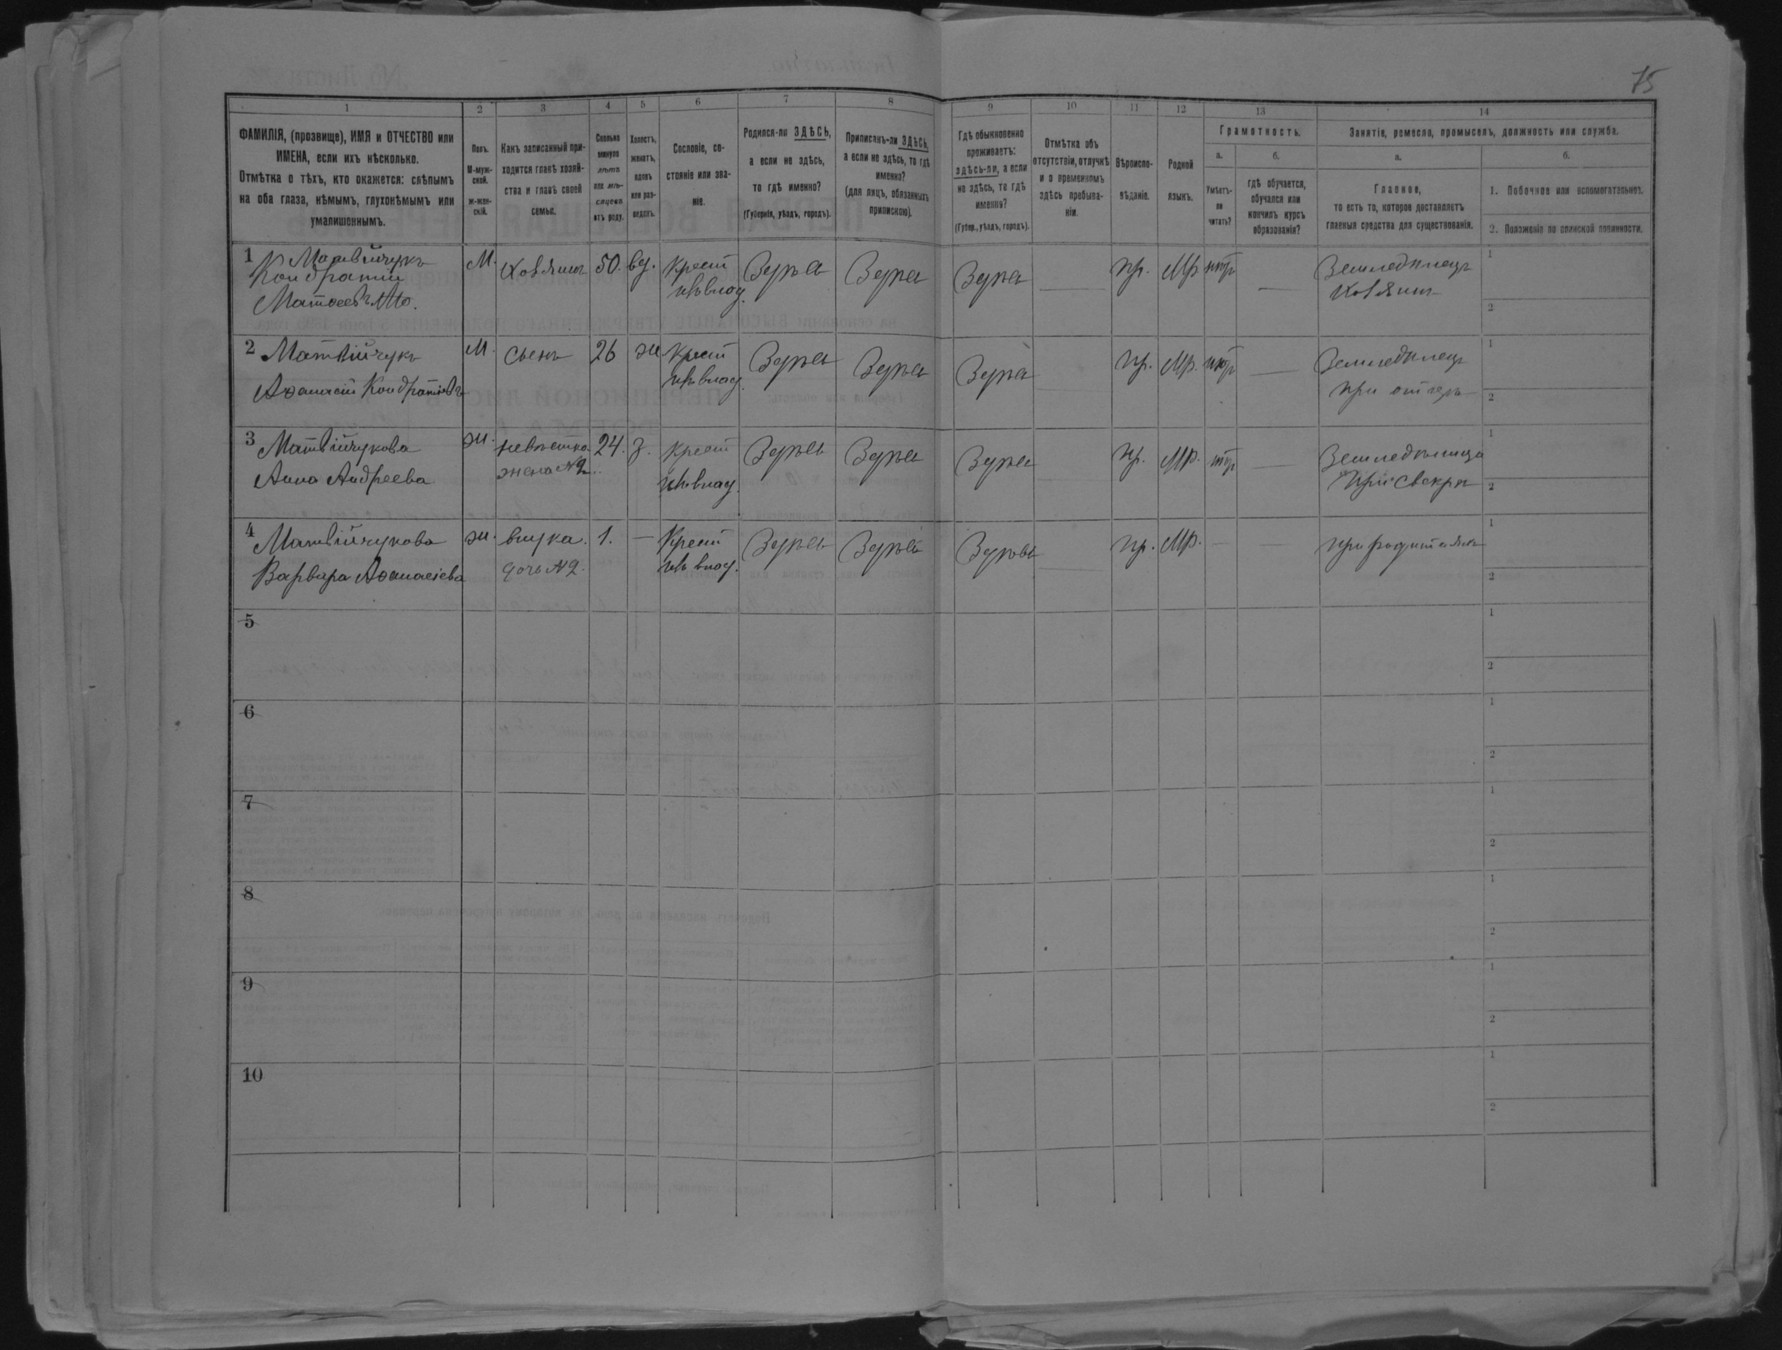 75
1
2
3
4
5
6
7
8
9
10
11
12
13
14
ФАМИЛІЯ, (прозвище), ИМЯ и ОТЧЕСТВО или
ИМЕНА, если ихъ нѣсколько.
Отмѣтка о тѣхъ, кто окажется: слѣпымъ
на оба глаза, нѣмымъ, глухонѣмымъ или
умалишеннымъ.
Полъ.
М-муж-
ской.
ж-жен-
скій.
Какъ записанный при-
ходится главѣ хозяй-
ства и главѣ своей
семьи.
Сколько
минуло
лѣтъ
или мѣ-
сяцевъ
отъ роду.
Холостъ,
женатъ,
вдовъ
или раз-
веденъ.
Сословіе, со-
стояніе или зва-
ніе.
Родился-ли ЗДѢСЬ,
а если не здѣсь,
то гдѣ именно?
(Губернія, уѣздъ, городъ).
Приписанъ-ли ЗДѢСЬ,
а если не здѣсь, то гдѣ
именно?
(для лицъ, обязанныхъ
припискою).
Гдѣ обыкновенно
проживаетъ:
здѣсь-ли, а если
не здѣсь, то гдѣ
именно?
(Губер., уѣздъ, городъ).
Отмѣтка объ
отсутствіи, отлучкѣ
и о временномъ
здѣсь пребыва-
ніи.
Вѣроиспо-
вѣданіе.
Родной
языкъ.
Грамотность.
а.
Умѣетъ-
ли
читать?
б.
гдѣ обучается,
обучался или
кончилъ курсъ
образованія?
Занятіе, ремесло, промыселъ, должность или служба.
а.
Главное,
то есть то, которое доставляетъ
главныя средства для существованія.
б.
1. Побочное или вспомогательное.
2. Положеніе по воинской повинности.
1 Матвійчукъ
Кондратій
М. Хозяинъ 50. вд. Крест Зерна Зерна Зерна пр. Мр нѣтъ Земледѣлецъ
Хозяинъ
1
2
2 Матвійчукъ М. сынъ 26 ж Крест Зерна Зерна Зерна пр. Мр. нѣтъ Земледѣлецъ
Афанасій Кондратіевъ
при отцѣ
1
2
3 Матвійчукова ж. невѣстка 24. з. Крест Зерна Зерна Зерна пр. Мр. нѣтъ Земледѣлица
Анна Андреева жена №2.
при свекрѣ
1
2
4 Матвійчукова ж. внука. 1. — Крест Зерна Зерна Зерна пр. Мр. — —
Варвара Афанасіева дочь №2.
1
2
5
1
2
6
1
2
7
1
2
8
1
2
9
1
2
10
1
2